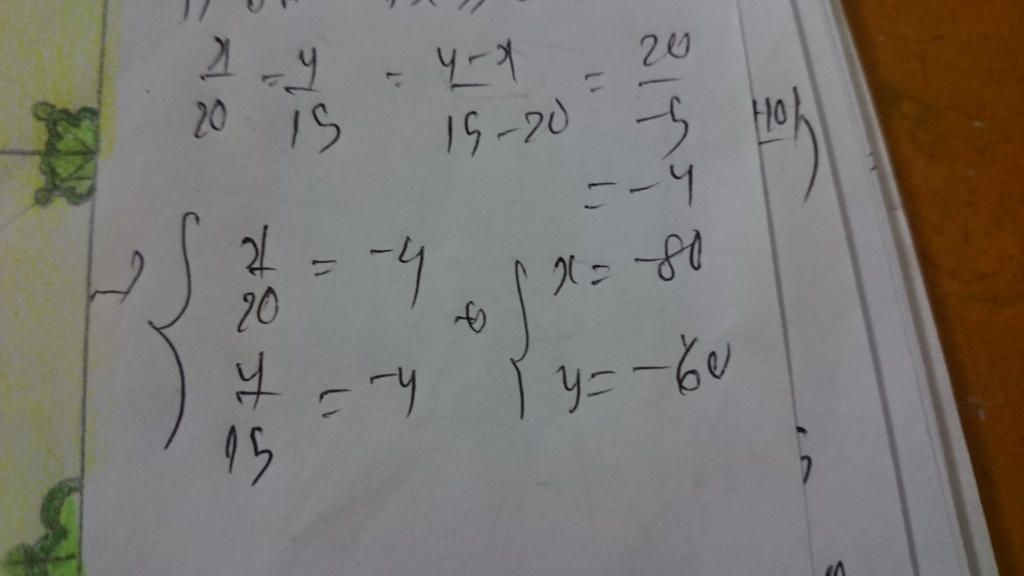 x/20 = y/15 = y-x/15-20 = 20/-5
= -4
{ x/20 = -4
y/15 = -4
{ x = -80
y = -60